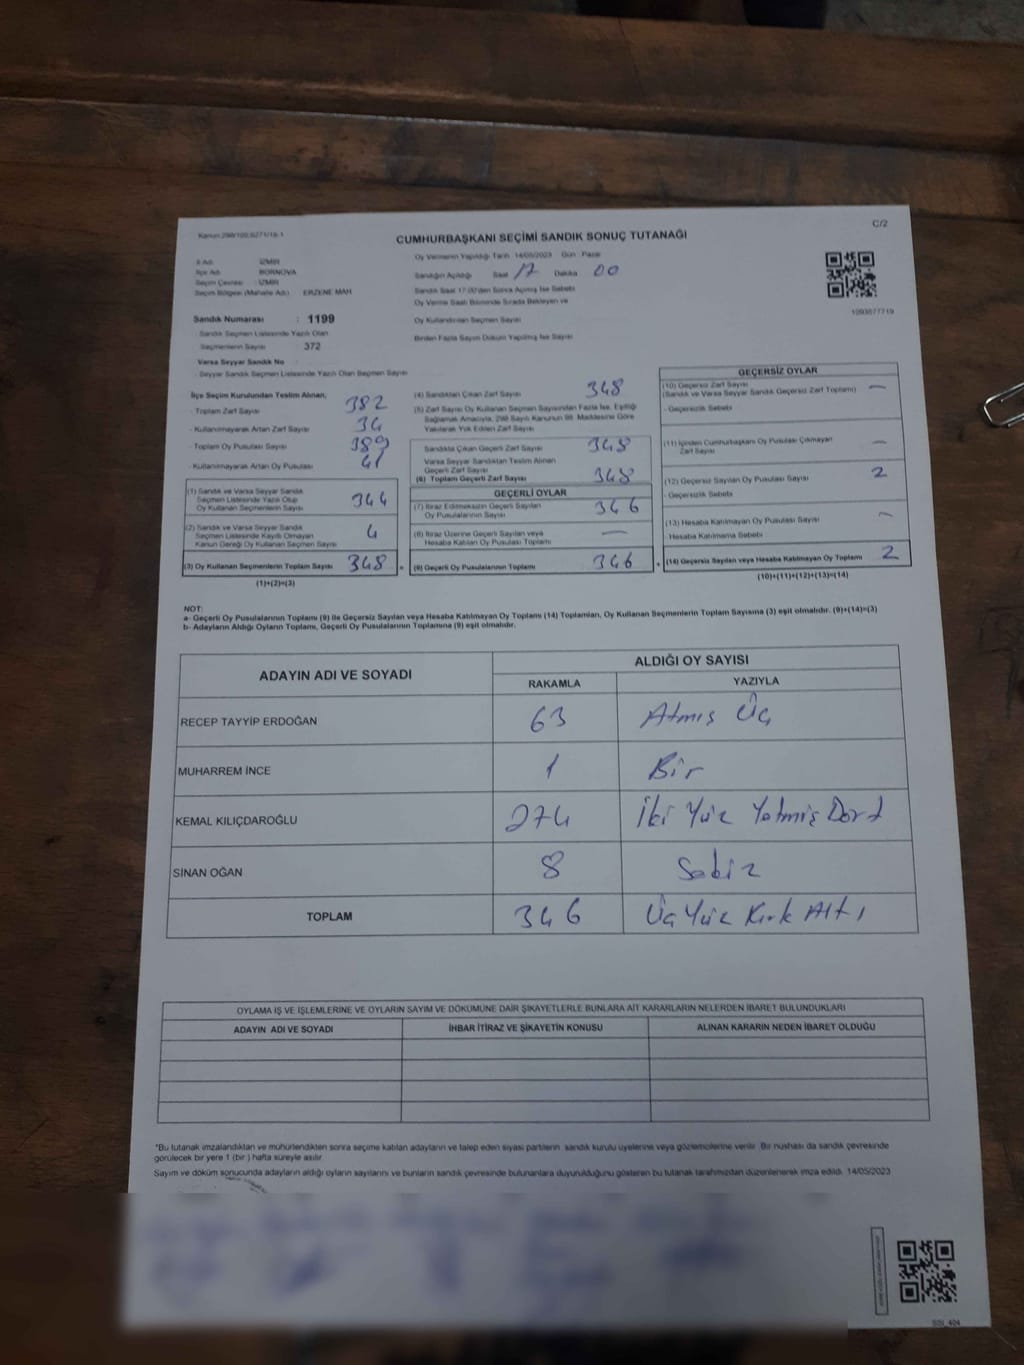 Kanun:298/105;6271/18-1
C/2
CUMHURBAŞKANI SEÇİMİ SANDIK SONUÇ TUTANAĞI
İl Adı İZMİR
İlçe Adı BORNOVA
Seçim Çevresi İZMİR
Seçim Bölgesi (Mahalle Adı) ERZENE MAH
Oy Vermenin Yapıldığı Tarih 14/05/2023 Gün Pazar
Sandığın Açıldığı Saat 17 Dakika 00
Sandık Saat 17.00'den Sonra Açılmış İse Sebebi
Oy Verme Saati Bitiminde Sırada Bekleyen ve
Oy Kullandırılan Seçmen Sayısı
Birden Fazla Sayım Döküm Yapılmış İse Sayısı
Sandık Numarası : 1199
Sandık Seçmen Listesinde Yazılı Olan
Seçmenlerin Sayısı 372
Varsa Seyyar Sandık No
Seyyar Sandık Seçmen Listesinde Yazılı Olan Seçmen Sayısı
İlçe Seçim Kurulundan Teslim Alınan;
- Toplam Zarf Sayısı 382
- Kullanılmayarak Artan Zarf Sayısı 34
- Toplam Oy Pusulası Sayısı 389
- Kullanılmayarak Artan Oy Pusulası 41
(1) Sandık ve Varsa Seyyar Sandık
Seçmen Listesinde Yazılı Olup
Oy Kullanan Seçmenlerin Sayısı 344
(2) Sandık ve Varsa Seyyar Sandık
Seçmen Listesinde Kayıtlı Olmayan
Kanun Gereği Oy Kullanan Seçmen Sayısı 4
(3) Oy Kullanan Seçmenlerin Toplam Sayısı 348
(1)+(2)=(3)
(4) Sandıktan Çıkan Zarf Sayısı 348
(5) Zarf Sayısı Oy Kullanan Seçmen Sayısından Fazla İse, Eşitliği
Sağlamak Amacıyla, 298 Sayılı Kanunun 98. Maddesine Göre
Yakılarak Yok Edilen Zarf Sayısı
Sandıkta Çıkan Geçerli Zarf Sayısı 348
Varsa Seyyar Sandıktan Teslim Alınan
Geçerli Zarf Sayısı
(6) Toplam Geçerli Zarf Sayısı 348
GEÇERLİ OYLAR
(7) İtiraz Edilmeksizin Geçerli Sayılan
Oy Pusulalarının Sayısı 346
(8) İtiraz Üzerine Geçerli Sayılan veya
Hesaba Katılan Oy Pusulası Toplamı —
(9) Geçerli Oy Pusulalarının Toplamı 346
GEÇERSİZ OYLAR
(10) Geçersiz Zarf Sayısı
(Sandık ve Varsa Seyyar Sandık Geçersiz Zarf Toplamı) —
- Geçersizlik Sebebi
(11) İçinden Cumhurbaşkanı Oy Pusulası Çıkmayan
Zarf Sayısı —
(12) Geçersiz Sayılan Oy Pusulası Sayısı 2
- Geçersizlik Sebebi
(13) Hesaba Katılmayan Oy Pusulası Sayısı —
- Hesaba Katılmama Sebebi
(14) Geçersiz Sayılan veya Hesaba Katılmayan Oy Toplamı 2
(10)+(11)+(12)+(13)=(14)
NOT:
a- Geçerli Oy Pusulalarının Toplamı (9) ile Geçersiz Sayılan veya Hesaba Katılmayan Oy Toplamı (14) Toplamları, Oy Kullanan Seçmenlerin Toplam Sayısına (3) eşit olmalıdır. (9)+(14)=(3)
b- Adayların Aldığı Oyların Toplamı, Geçerli Oy Pusulalarının Toplamına (9) eşit olmalıdır.
ADAYIN ADI VE SOYADI ALDIĞI OY SAYISI
RAKAMLA YAZIYLA
RECEP TAYYİP ERDOĞAN 63 Atmış Üç
MUHARREM İNCE 1 Bir
KEMAL KILIÇDAROĞLU 274 İki Yüz Yetmiş Dört
SİNAN OĞAN 8 Sekiz
TOPLAM 346 Üç Yüz Kırk Altı
OYLAMA İŞ VE İŞLEMLERİNE VE OYLARIN SAYIM VE DÖKÜMÜNE DAİR ŞİKAYETLERLE BUNLARA AİT KARARLARIN NELERDEN İBARET BULUNDUKLARI
ADAYIN ADI VE SOYADI İHBAR İTİRAZ VE ŞİKAYETİN KONUSU ALINAN KARARIN NEDEN İBARET OLDUĞU
*Bu tutanak imzalandıktan ve mühürlendikten sonra seçime katılan adayların ve talep eden siyasi partilerin sandık kurulu üyelerine veya gözlemcilerine verilir. Bir nüshası da sandık çevresinde
görülecek bir yere 1 (bir) hafta süreyle asılır.
Sayım ve döküm sonucunda adayların aldığı oyların sayılarını ve bunların sandık çevresinde bulunanlara duyurulduğunu gösteren bu tutanak tarafımızdan düzenlenerek imza edildi. 14/05/2023